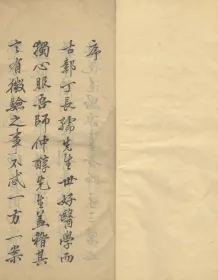 序
古鄣丁長孺先生世好醫學而
獨心服吾師仲醇先生蓋稽其
言有徵驗之事不惑一方一案